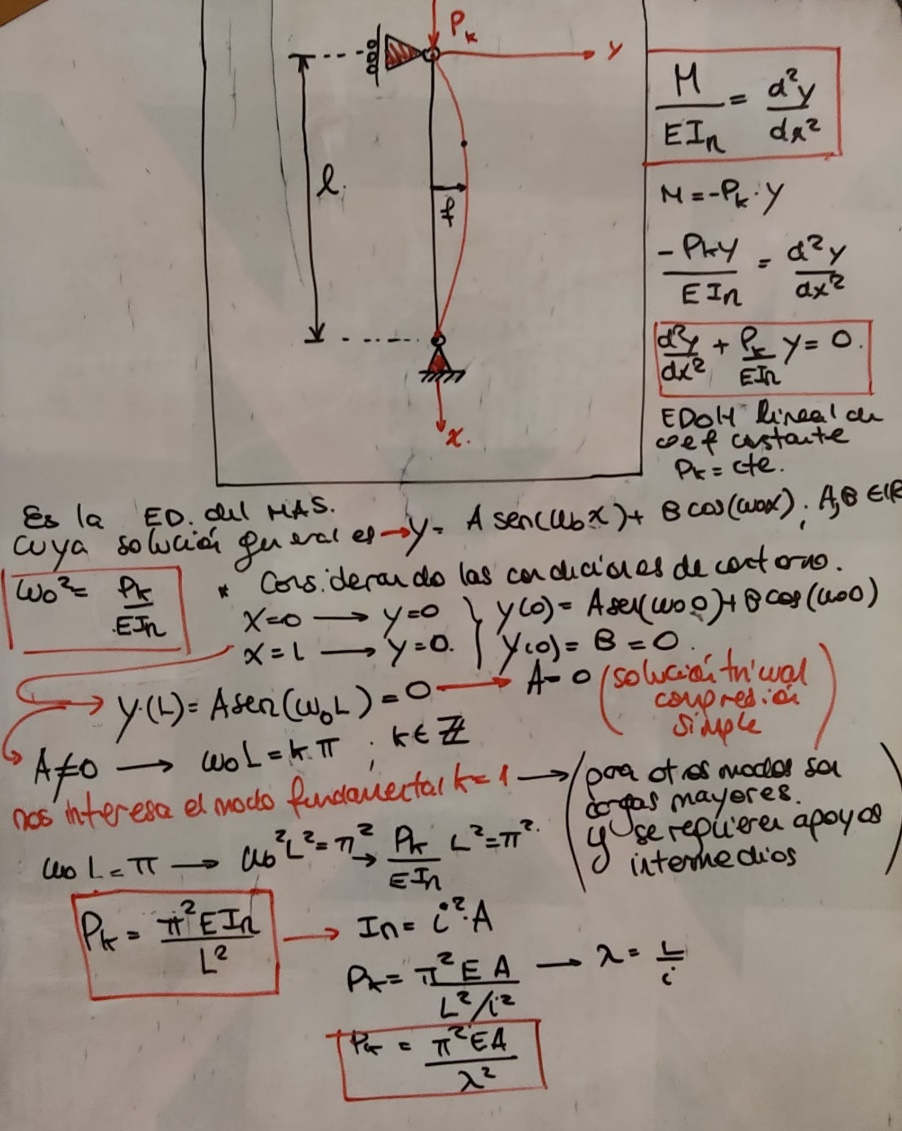 P_k
y
l
f
x.
M/(EI_n) = d²y/dx²
M = -P_k · y
-P_k y/(EI_n) = d²y/dx²
d²y/dx² + P_k/(EI_n) y = 0.
EDOH lineal de
coef constante
P_k = cte.
Es la ED. del MAS.
cuya solución general es → y = A sen(ω₀x) + B cos(ω₀x) . A,B ∈ ℝ
ω₀² = P_k/(EI_n)
* Considerando las condiciones de contorno.
x=0 → y=0 } y(0) = A sen(ω₀0) + B cos(ω₀0)
x=L → y=0. } y(0) = B = 0.
y(L) = A sen(ω₀L) = 0 → A=0 (solución trivial
compresión
simple)
A≠0 → ω₀L = k.π ; k ∈ ℤ
nos interesa el modo fundamental k=1 → (para otros modos son
cargas mayores.
y se requieren apoyos
intermedios)
ω₀L = π → ω₀²L² = π² → P_k/(EI_n) L² = π².
P_k = π²EI_n/L² → I_n = i²·A
P_k = π²EA/(L²/i²) → λ = L/i
P_k = π²EA/λ²